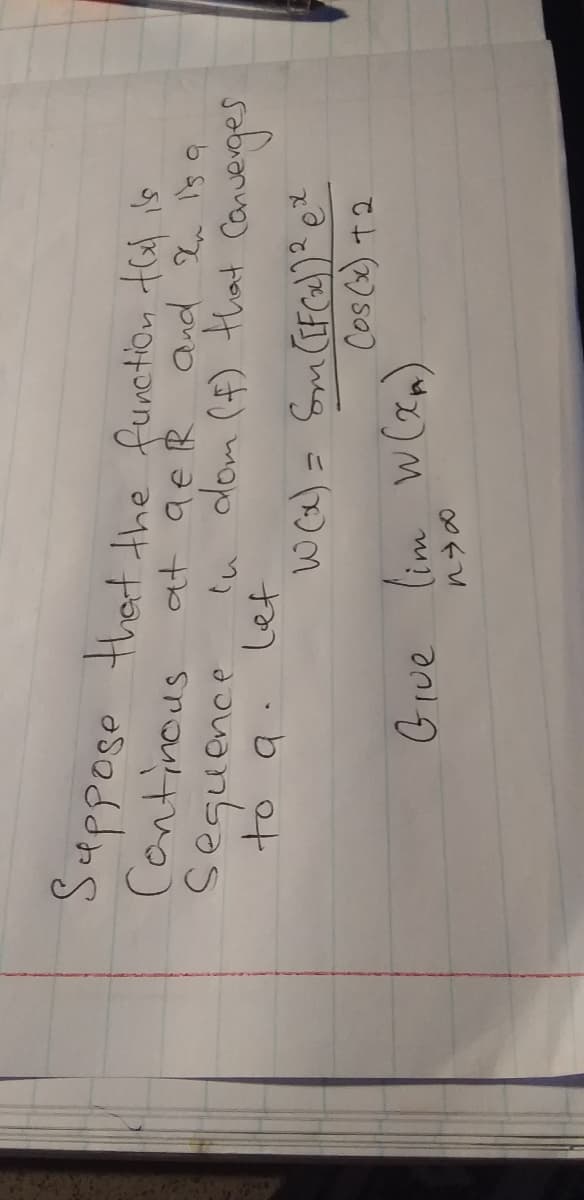 Suppose that the function f(x) is
Continous at a ∈ ℝ and xn is a
Sequence in dom (f) that Converges
to a. Let
W(x) = Sin([f(x)])² e^x
Cos(x) + 2
Give lim W(xn)
n→∞